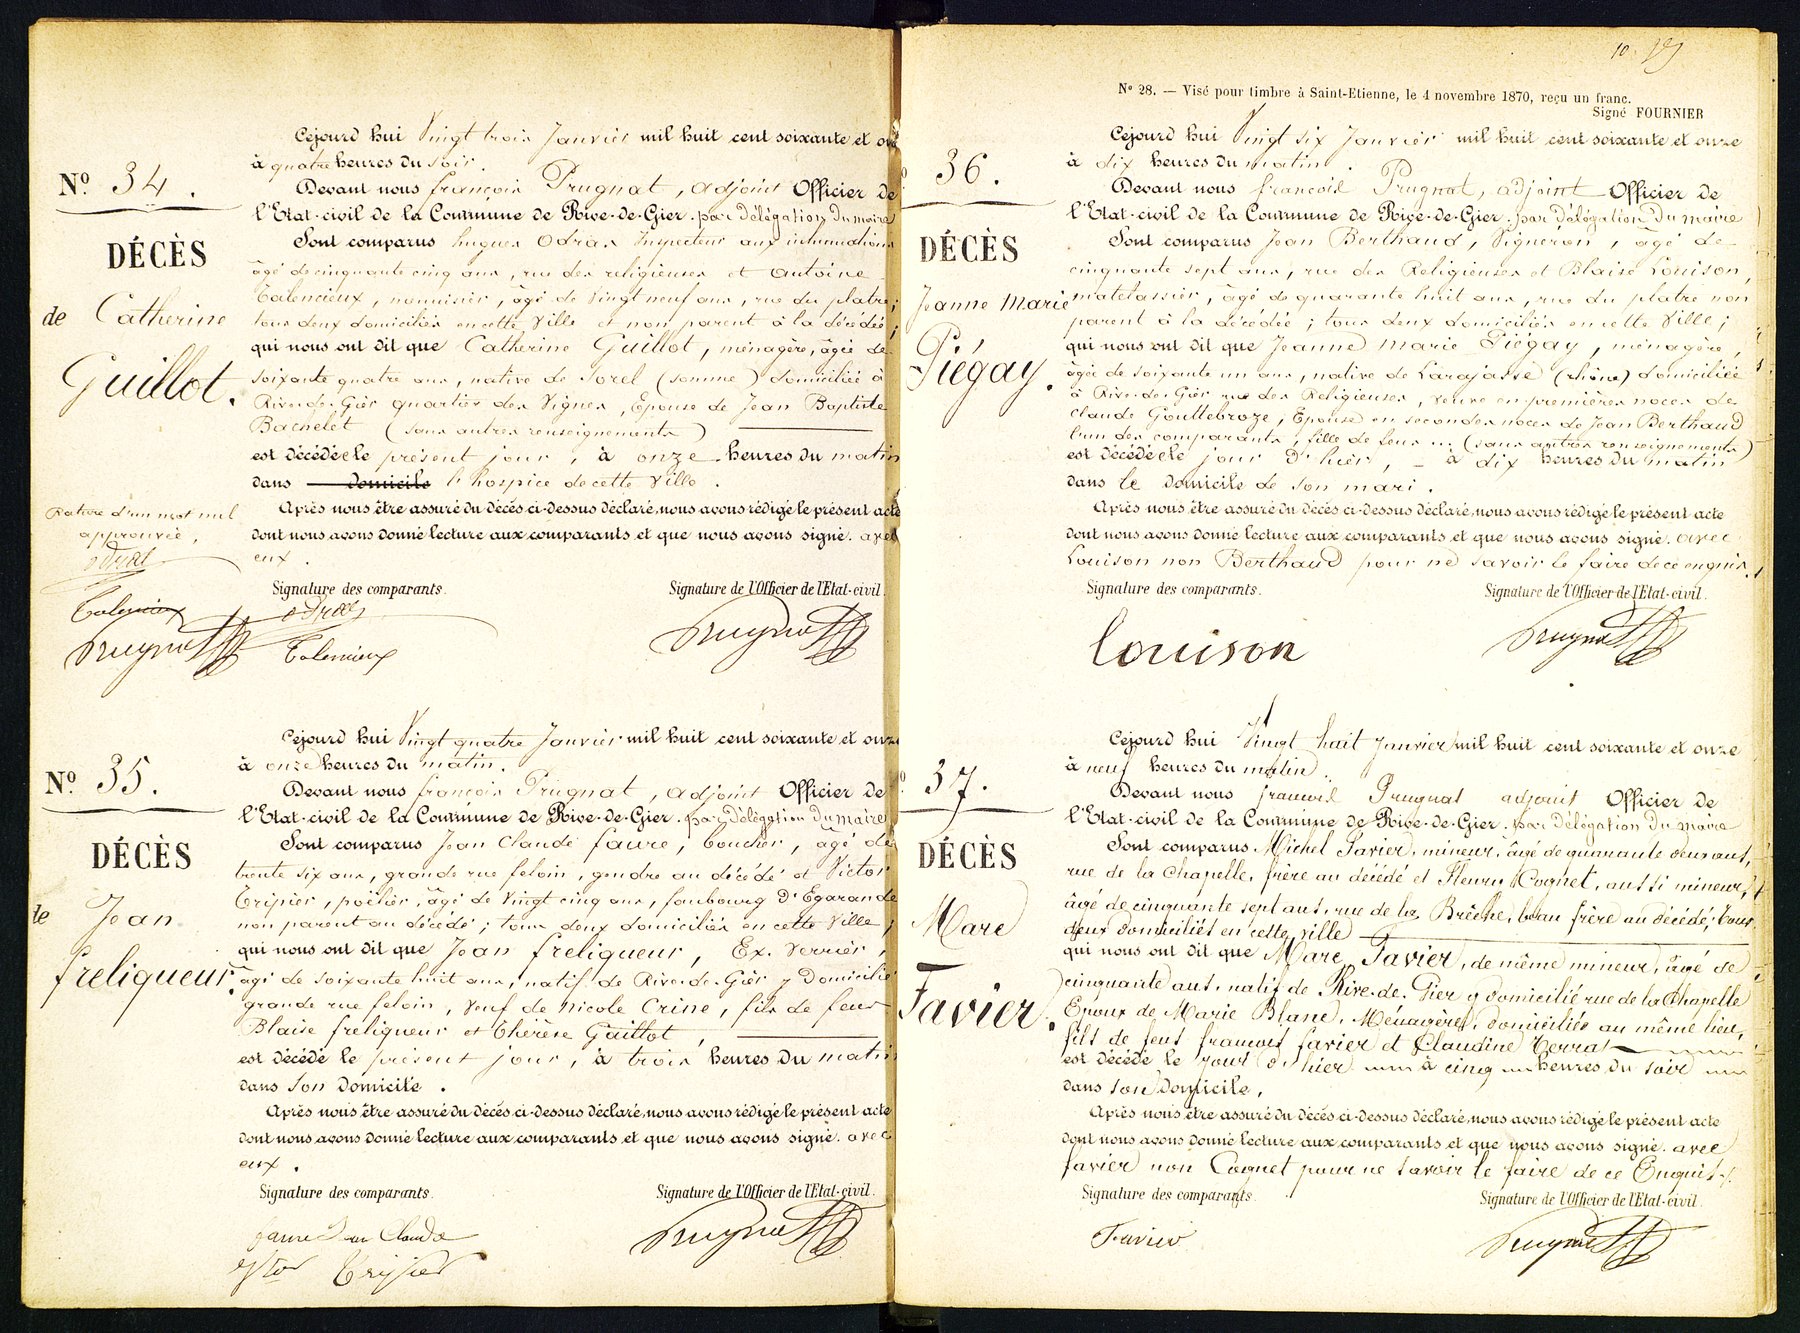 Cejourd'hui Vingt trois Janvier mil huit cent soixante et onze
à quatre heures du soir.
N° 34.
Devant nous françois Prugnat, adjoint Officier de
l'Etat-civil de la Commune de Rive-de-Gier. par délégation du maire
Sont comparus hugues Odras Inspecteur aux inhumations
DÉCÈS
âgé de cinquante cinq ans, rue des religieuses et Antoine
Talencieux, menuisier, âgé de vingt neuf ans, rue du platre;
de Catherine
tous deux domiciliés en cette Ville et non parent à la décédée;
qui nous ont dit que Catherine Guillot, ménagère, âgée de
Guillot.
soixante quatre ans, native de Sorel (somme) domiciliée à
Rive-de-Gier quartier des Vignes, Epouse de Jean Baptiste
Bachelet (sans autres renseignements)
est décédée le présent jour, à onze heures du matin
dans domicile l'hospice de cette Ville.
Rature d'un mot nul
approuvée,
Après nous être assuré du décès ci-dessus déclaré, nous avons rédigé le présent acte
dont nous avons donné lecture aux comparants et que nous avons signé. avec
eux.
Signature des comparants. Signature de l'Officier de l'Etat-civil.
odras
Talencieux
Prugnat
odras
Talencieux
Prugnat
Cejourd'hui Vingt quatre Janvier mil huit cent soixante et onze
à onze heures du matin.
N° 35.
Devant nous françois Prugnat, adjoint Officier de
l'Etat-civil de la Commune de Rive-de-Gier. par délégation du maire
Sont comparus Jean Claude faure, boucher, âgé de
DÉCÈS
trente six ans, grande rue feloin, gendre au décédé et Victor
Tripier, poëlier, âgé de Vingt cinq ans, faubourg d'Egarande
de Jean
non parent au décédé; tous deux domiciliés en cette Ville;
qui nous ont dit que Jean freliqueur, Ex. Verrier,
freliqueur.
âgé de soixante huit ans, natif de Rive-de-Gier y domicilié
grande rue feloin, Veuf de Nicole Crine, fils de feus
Blaise freliqueur et thérèse Gaillot,
est décédé le présent jour, à trois heures du matin
dans son domicile.
Après nous être assuré du décès ci-dessus déclaré, nous avons rédigé le présent acte
dont nous avons donné lecture aux comparants et que nous avons signé. avec
eux.
Signature des comparants. Signature de l'Officier de l'Etat-civil.
faure Jean Claude
Tripier
Prugnat
10
N° 28. — Visé pour timbre à Saint-Etienne, le 4 novembre 1870, reçu un franc.
Signé FOURNIER
Cejourd'hui Vingt six Janvier mil huit cent soixante et onze
à dix heures du matin.
36.
Devant nous françois Prugnat, adjoint Officier de
l'Etat-civil de la Commune de Rive-de-Gier. par délégation du maire
Sont comparus Jean Berthaud, Vigneron, âgé de
DÉCÈS
cinquante sept ans, rue des Religieuses et Blaise Louison,
Jeanne Marie
matelassier, âgé de quarante huit ans, rue du platre non
parent à la décédée; tous deux domiciliés en cette Ville;
qui nous ont dit que Jeanne Marie Piégay, ménagère,
Piégay.
âgée de soixante un ans, native de Larajasse (rhône) domiciliée
à Rive-de-Gier rue des Religieuses, veuve en premières noces de
Claude Gouttebroze, Epouse en secondes noces de Jean Berthaud
l'un des comparants, fille de feus ... (sans autres renseignements)
est décédée le jour d'hier, à dix heures du matin
dans le domicile de son mari.
Après nous être assuré du décès ci-dessus déclaré, nous avons rédigé le présent acte
dont nous avons donné lecture aux comparants et que nous avons signé. avec
Louison non Berthaud pour ne savoir le faire de ce enquis.
Signature des comparants. Signature de l'Officier de l'Etat-civil.
Louison
Prugnat
Cejourd'hui Vingt huit Janvier mil huit cent soixante et onze
à neuf heures du matin.
37.
Devant nous françois Prugnat adjoint Officier de
l'Etat-civil de la Commune de Rive-de-Gier. par délégation du maire
Sont comparus Michel Favier, mineur, âgé de quarante deux ans,
DÉCÈS
rue de la Chapelle, frère au décédé et Fleury Cognet, aussi mineur,
âgé de cinquante sept ans, rue de la Brèche, beau frère au décédé; tous
Marc
deux domiciliés en cette ville
qui nous ont dit que Marc Favier, de même mineur, âgé de
cinquante ans, natif de Rive-de-Gier y domicilié rue de la Chapelle
Favier.
Epoux de Marie Blanc, Ménagère, domiciliée au même lieu,
fils de feus françois favier et Claudine Terra
est décédé le jour d'hier à cinq heures du soir
dans son domicile,
Après nous être assuré du décès ci-dessus déclaré, nous avons rédigé le présent acte
dont nous avons donné lecture aux comparants et que nous avons signé. avec
favier non Cognet pour ne savoir le faire de ce Enquis.
Signature des comparants. Signature de l'Officier de l'Etat-civil.
Favier
Prugnat